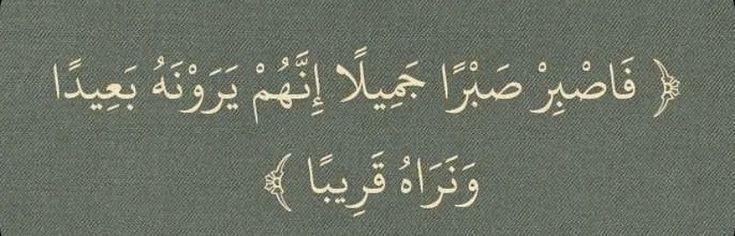 ﴿ فَاصْبِرْ صَبْرًا جَمِيلًا إِنَّهُمْ يَرَوْنَهُ بَعِيدًا
وَنَرَاهُ قَرِيبًا ﴾